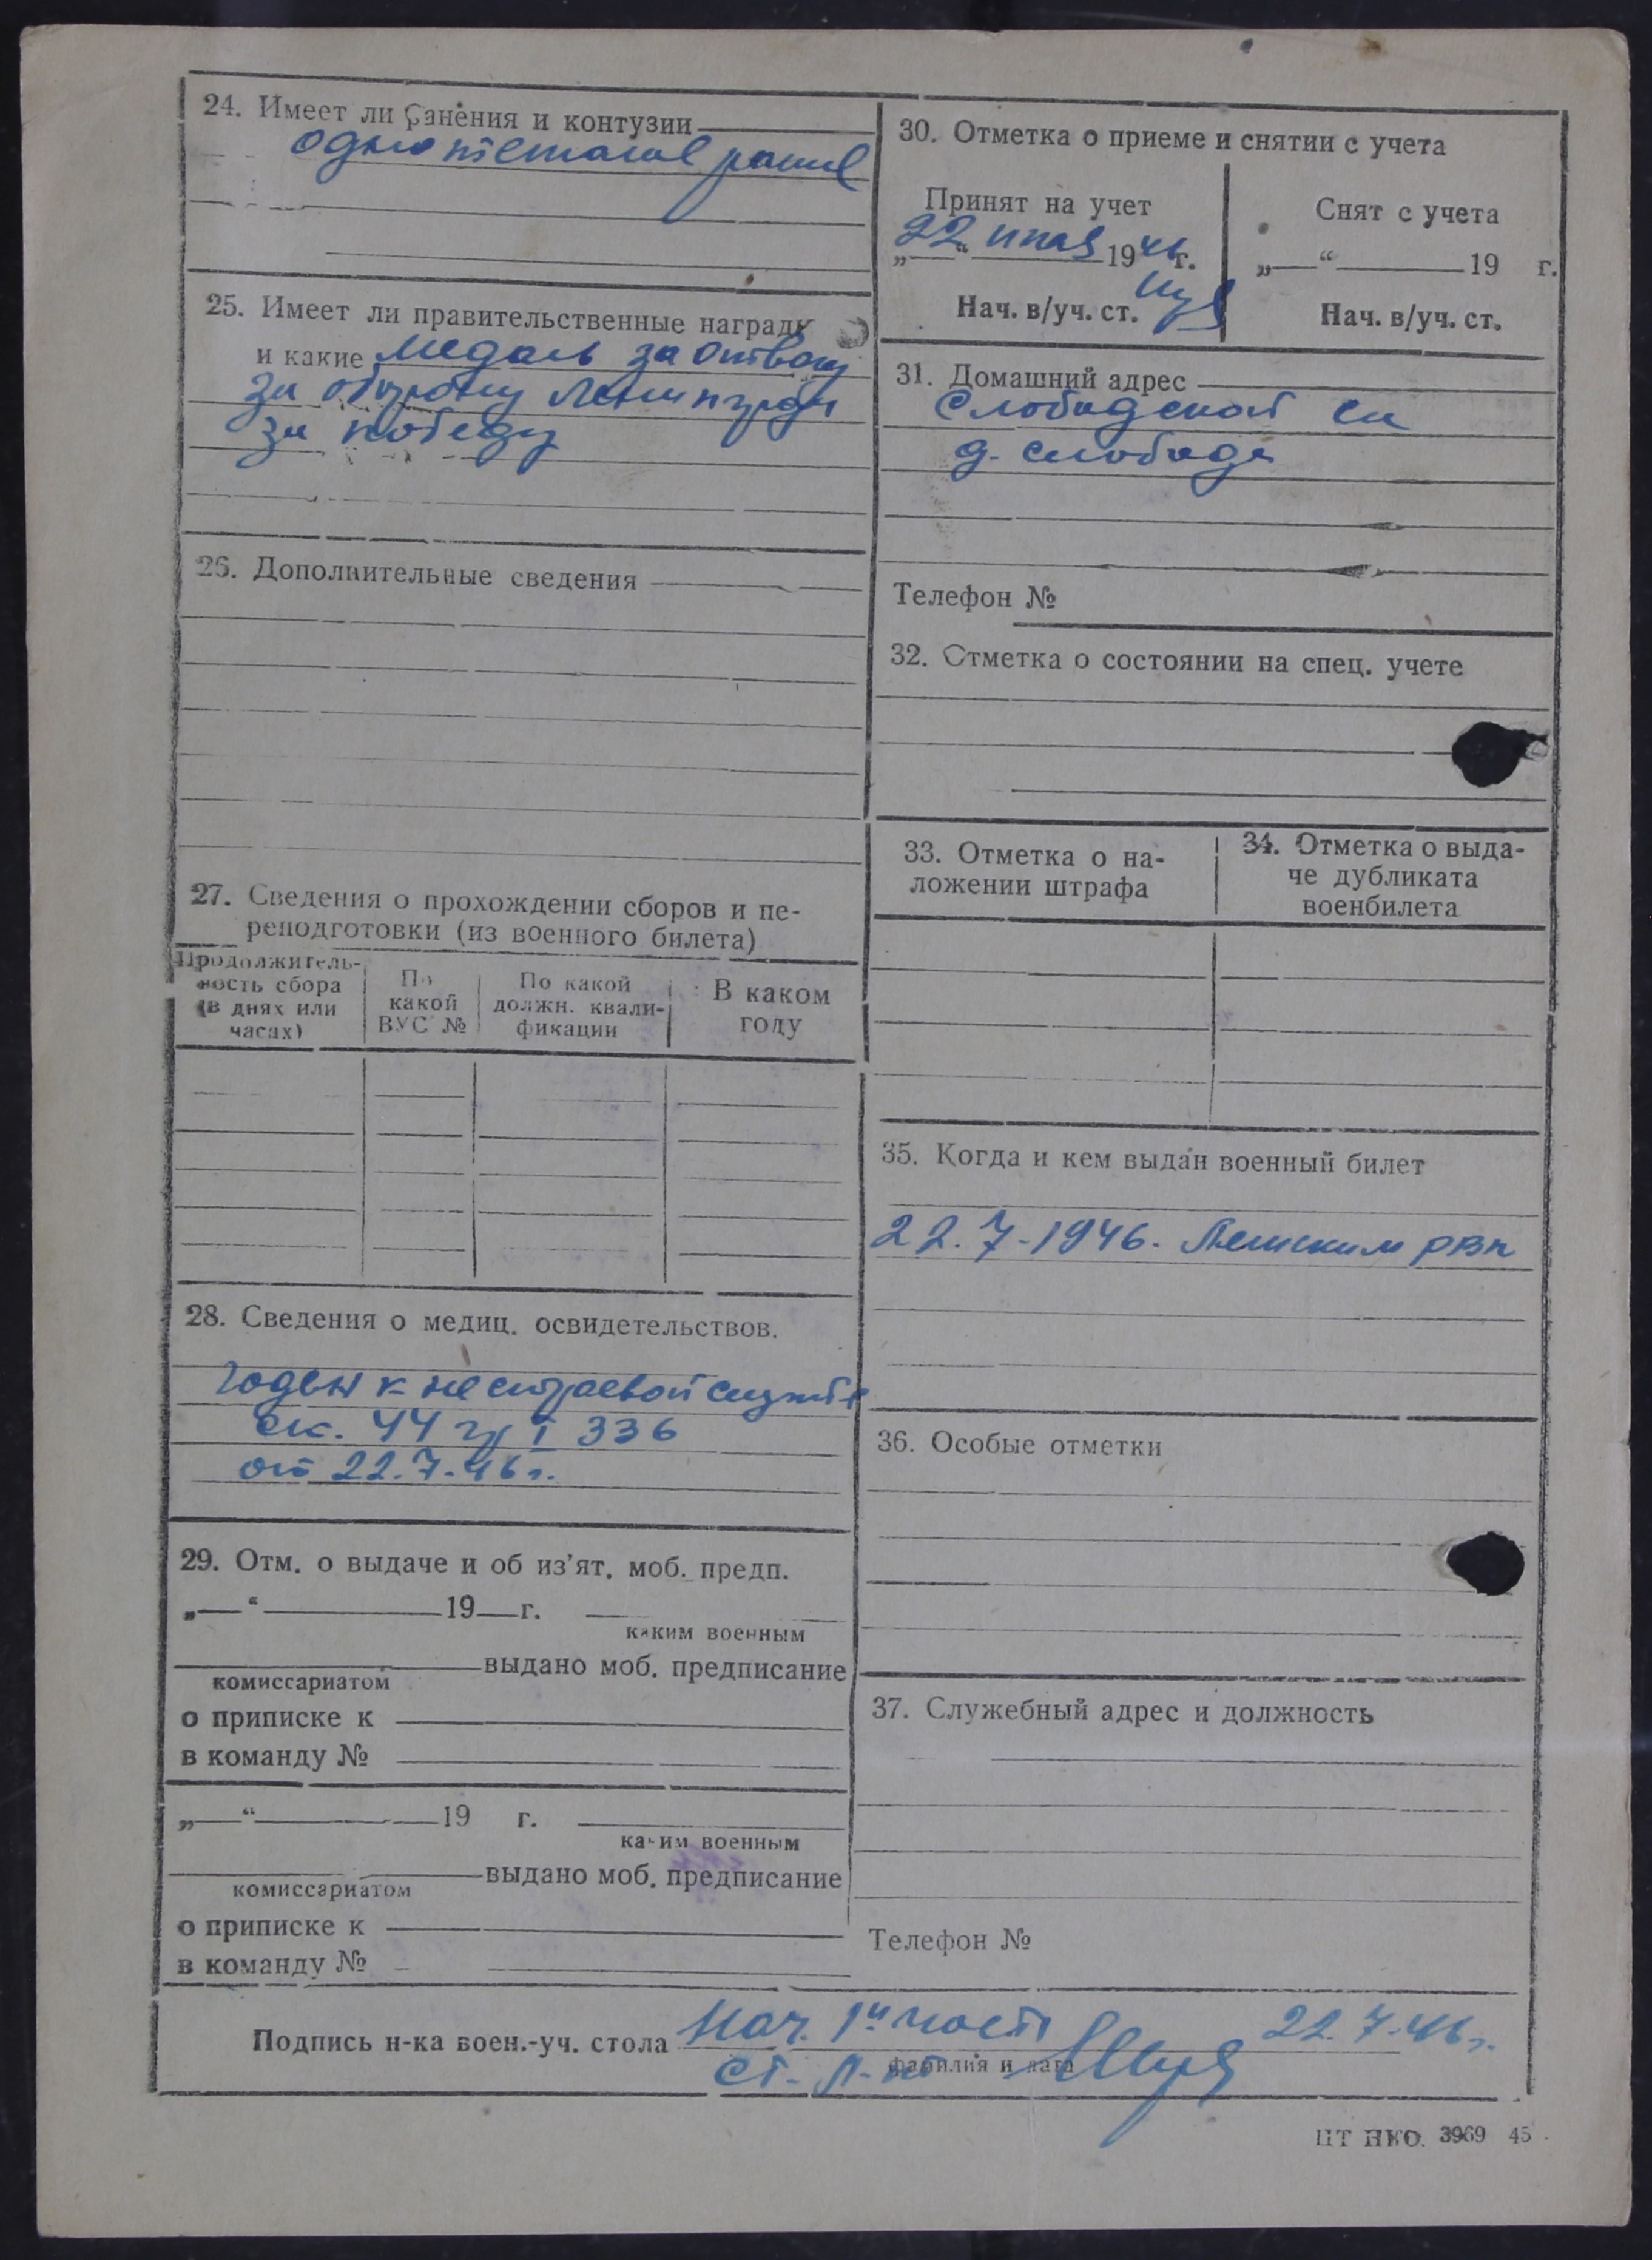 24. Имеет ли ранения и контузии
одно
25. Имеет ли правительственные награды
и какие медаль за отвагу
за оборону Ленинград
за победу
26. Дополнительные сведения
27. Сведения о прохождении сборов и пе-
реподготовки (из военного билета)
Продолжитель-
ность сбора
(в днях или
часах)
По
какой
ВУС №
По какой
должн. квали-
фикации
В каком
году
28. Сведения о медиц. освидетельствов.
годен к нестроевой службе
44 гр I 336
от 22.7.46 г.
29. Отм. о выдаче и об из'ят. моб. предп.
„ “ 19 г.
каким военным
выдано моб. предписание
комиссариатом
о приписке к
в команду №
„ “ 19 г.
каким военным
выдано моб. предписание
комиссариатом
о приписке к
в команду №
30. Отметка о приеме и снятии с учета
Принят на учет
„22“ июля 1946 г.
Нач. в/уч. ст.
Снят с учета
„ “ 19 г.
Нач. в/уч. ст.
31. Домашний адрес
Слободской с/с
д. Слобода
Телефон №
32. Отметка о состоянии на спец. учете
33. Отметка о на-
ложении штрафа
34. Отметка о выда-
че дубликата
военбилета
35. Когда и кем выдан военный билет
22.7-1946. РВК
36. Особые отметки
37. Служебный адрес и должность
Телефон №
Подпись н-ка воен.-уч. стола Нач. 1й части 22.7.46 г.
ст. л-нт
фамилия и дата
ЦТ НКО. 3969 45